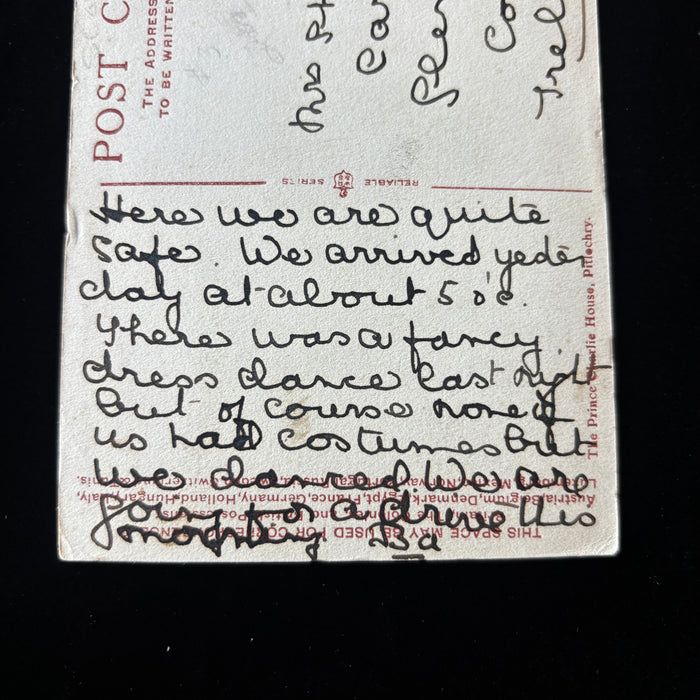 POST C
THE ADDRESS
TO BE WRITTEN
Mrs
Car
Co
Trel
RELIABLE SERIES
Here we are quite
safe. We arrived yester
day at about 5 o'c.
There was a fancy
dress dance last night
but of course none of
us had costumes but
we danced. We are
going for a drive this
morning Ba
The Prince Charlie House, Pitlochry.
THIS SPACE MAY BE USED FOR CORRESPONDENCE
Austria, Belgium, Denmark, Egypt, France, Germany, Holland, Hungary, Italy,